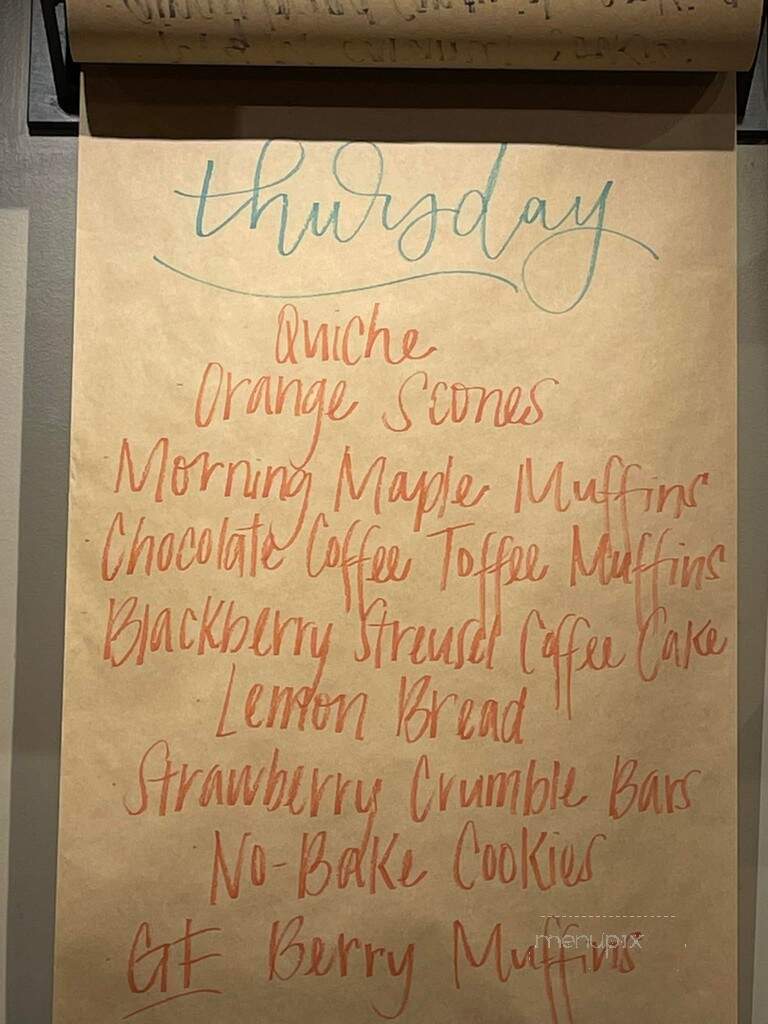 thursday
Quiche
Orange Scones
Morning Maple Muffins
Chocolate Coffee Toffee Muffins
Blackberry Streusel Coffee Cake
Lemon Bread
Strawberry Crumble Bars
No-Bake Cookies
GF Berry Muffins
menupix